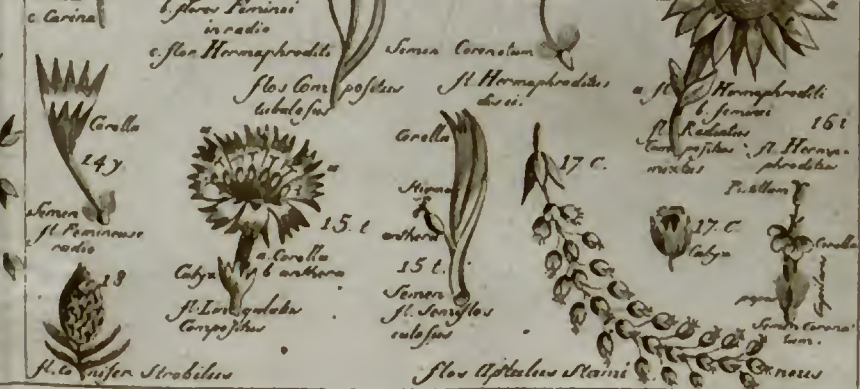 c. Carina
b. flores Feminei
in radio
c. flor. Hermaphroditi
flos Compositus
tubulosus
Semen Coronatum
fl. Hermaphroditus
disci.
a. fl. Hermaphroditi
b. feminei
fl. Radiatus
Compositus
mixtus
16 t
fl. Hermaphroditus
Corolla
14 y.
Semen
fl. Femineus
radio
a
a
15. t
a. Corolla
b anthera
Calyx
fl. Lingulatus
Compositus
Corolla
Stigma
anthera
15 t.
Semen
fl. Semiflos
culosus
17 C.
17. C.
Calyx
Pistillum
Corolla
Semen Corona
tum.
18
fl. Conifer Strobilus
flos Apetalus Stamineus